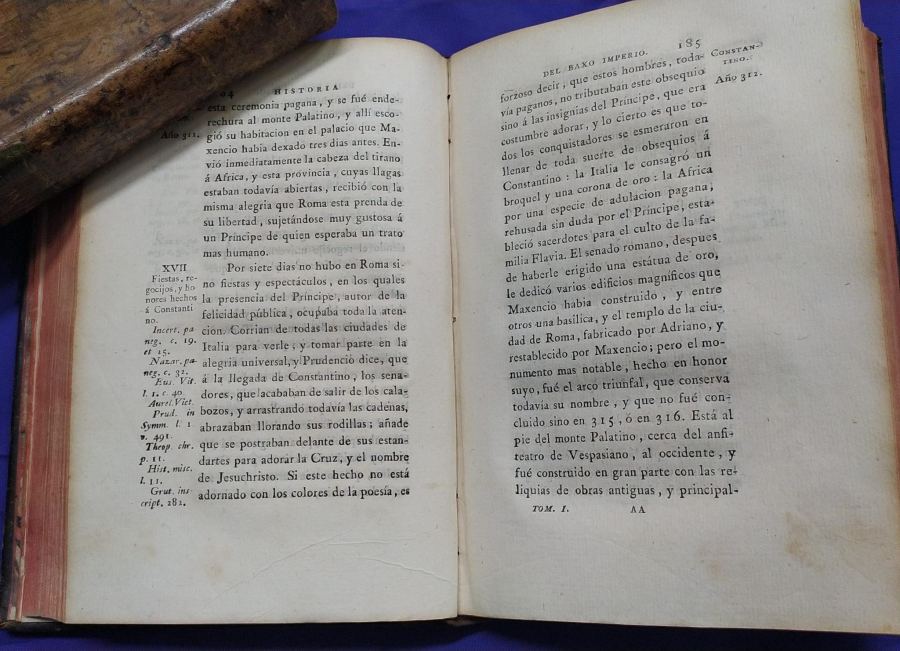 HISTORIA
esta ceremonia pagana, y se fué ende-
rechura al monte Palatino, y allí esco-
Año 312.
gió su habitacion en el palacio que Ma-
xencio habia dexado tres dias antes. En-
vió inmediatamente la cabeza del tirano
á Africa, y esta provincia, cuyas llagas
estaban todavía abiertas, recibió con la
misma alegria que Roma esta prenda de
su libertad, sujetándose muy gustosa á
un Príncipe de quien esperaba un trato
mas humano.
XVII
Fiestas, re-
gocijos, y ho
nores hechos
á Constanti
no.
Incert. pa
neg. c. 19.
et 15.
Nazar. pa.
neg. c. 32.
Eus. Vit.
l. 1. c. 40.
Aurel. Vict.
Prud. in
Symm. l. 1.
v. 491.
Theop. chr.
p. 11.
Hist. misc.
l. 11.
Grut. ins-
cript. 282.
Por siete dias no hubo en Roma si-
no fiestas y espectáculos, en los quales
la presencia del Príncipe, autor de la
felicidad pública, ocupaba toda la aten-
cion. Corrian de todas las ciudades de
Italia para verle; y tomar parte en la
alegria universal, y Prudencio dice, que
á la llegada de Constantino, los sena-
dores, que acababan de salir de los cala-
bozos, y arrastrando todavía las cadenas,
abrazaban llorando sus rodillas; añade
que se postraban delante de sus estan-
dartes para adorar la Cruz, y el nombre
de Jesuchristo. Si este hecho no está
adornado con los colores de la poesía, es
DEL BAXO IMPERIO. 185
CONSTAN-
TINO.
Año 312.
forzoso decir, que estos hombres, toda-
vía paganos, no tributaban este obsequio
sino á las insignias del Príncipe, que era
costumbre adorar, y lo cierto es que to-
dos los conquistadores se esmeraron en
llenar de toda suerte de obsequios á
Constantino: la Italia le consagró un
broquel y una corona de oro: la Africa
por una especie de adulacion pagana,
rehusada sin duda por el Príncipe, esta-
bleció sacerdotes para el culto de la fa-
milia Flavia. El senado romano, despues
de haberle erigido una estátua de oro,
le dedicó varios edificios magníficos que
Maxencio habia construido, y entre
otros una basílica, y el templo de la ciu-
dad de Roma, fabricado por Adriano, y
restablecido por Maxencio; pero el mo-
numento mas notable, hecho en honor
suyo, fué el arco triunfal, que conserva
todavia su nombre, y que no fué con-
cluido sino en 315, ó en 316. Está al
pie del monte Palatino, cerca del anfi-
teatro de Vespasiano, al occidente, y
fué construido en gran parte con las re-
liquias de obras antiguas, y principal-
TOM. I. AA